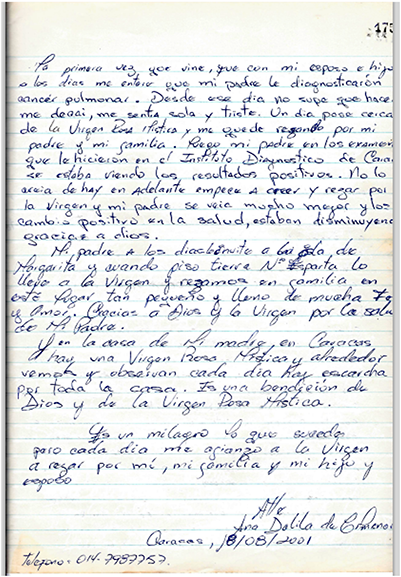 175
La primera vez que vine, que con mi esposo e hijo
a los días me entere que mi padre le diagnosticarón
cáncer pulmonar. Desde ese dia no supe que hacer
me , me sentia sola y triste. Un día pase cerca
de la Virgen Rosa Mistica y me quede rezando por mi
padre y mi familia. Luego mi padre en los examenes
que le hicieron en el Instituto Diagnostico de Caracas
se estaba viendo los resultados positivos. No lo
creia de hay en Adelante empece a creer y rezar por
la Virgen y mi padre se veia mucho mejor y los
cambio positivo en la salud, estaban disminuyendo
gracias a dios.
Mi padre a los vino a la Isla de
Margarita y cuando piso tierra Nª Esparta lo
llevo a la Virgen y rezamos en familia en
este lugar tan pequeño y lleno de mucha Fe
y Amor. Gracias a Dios y la Virgen por la salud
de Mi Padre.
Y en la casa de Mi madre, en Caracas
hay una Virgen Rosa Mistica y alrededor
vemos y observan cada dia hay escarcha
por toda la casa. Es una bendición de
Dios y de la Virgen Rosa Mistica.
Es un milagro lo que sucede
pero cada dia me afianzo a la Virgen
a rezar por mí, mi familia y mi hijo y
esposo
Atte
Ana Dalila de
Caracas, 18/08/2001
Telefono: 014-7987757.